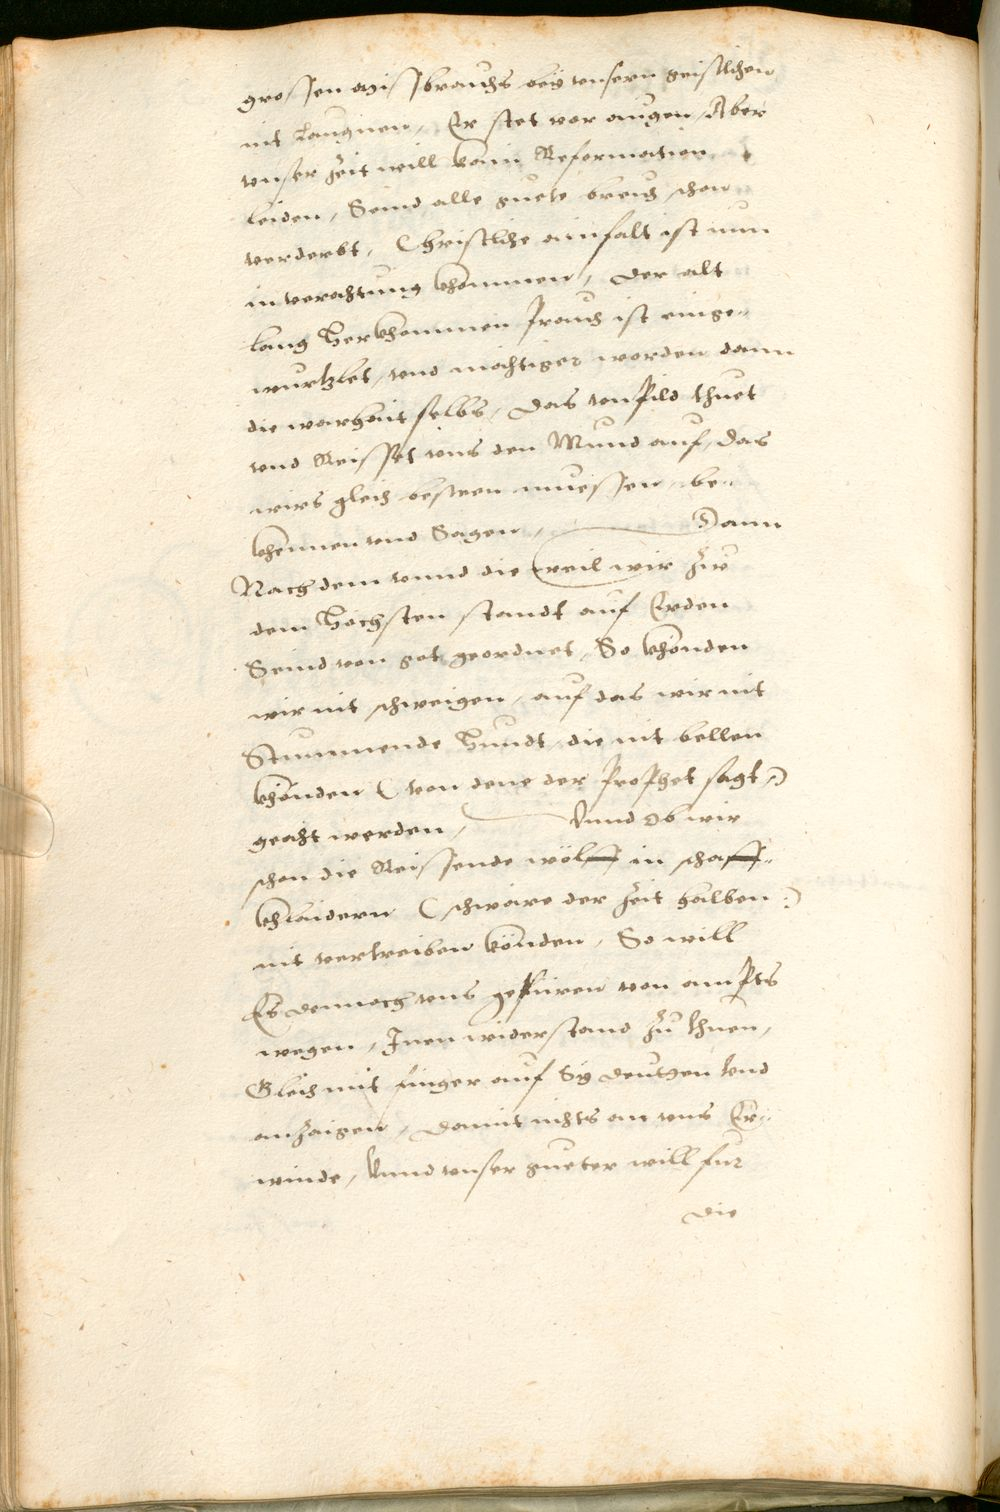 grossen missbrauchs bey unsern geistlichen
nit laugnen, Er stet vor augen, Aber
unser Zeit will kain Reformation
leiden, Seind alle guete breuch schon
verderbt, Christliche ainfalt ist nun
in verachtung khommen, der alt
lang Herkhommen prauch ist einge-
wurtzlet, und mechtiger worden dann
die warhait selbs, Das unpild thuet
und Reisset uns den Mund auf, das
wirs gleich besteen muessen, be-
khennen und Sagen, Dann
Nach dem unnd die weil wir Zu
dem Höchsten standt auf Erden
Seind von got geordnet, So khönden
wir nit schweigen, auf das wir nit
Stummende Hundt, die nit bellen
khönden (von dene der Prophet sagt)
geacht werden, Unnd Ob wir
schon die Reissende wölff in schaff-
khlaidern (schwäre der Zeit halben)
nit vertreiben könden, So will
Es dennoch uns gepüren von ampts
wegen, Inen widerstand Zu thuen,
Gleich mit finger auf Sy deutgen Und
anzaigen, Damit nichts an uns Er-
winde, Unnd unser gueter will fur
die